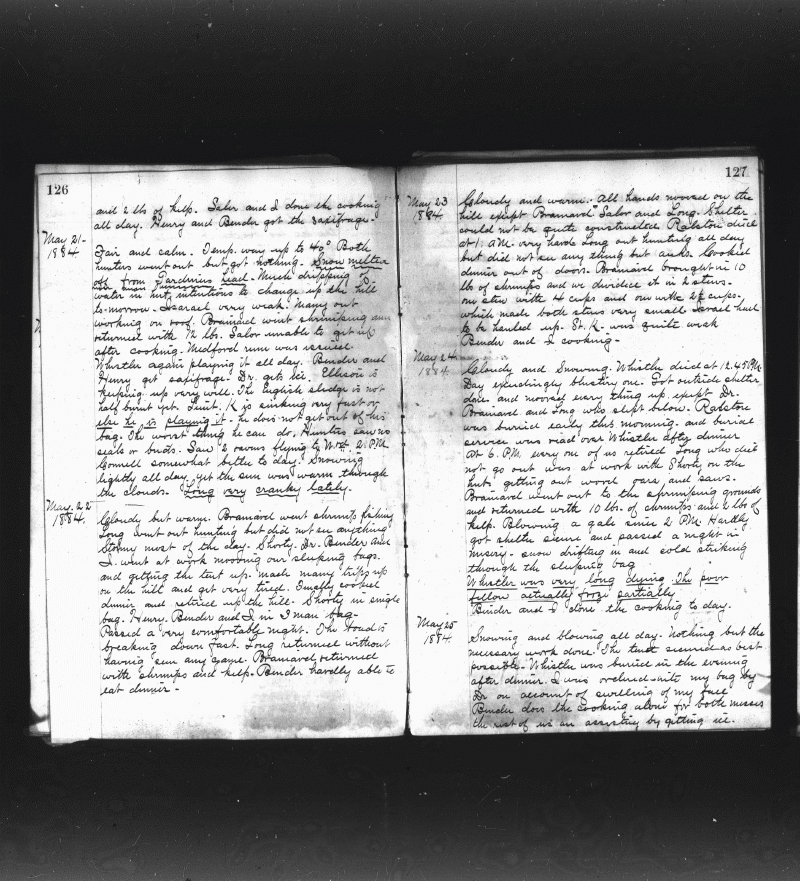 126
and 2 lbs of kelp. Salor and I done the cooking
all day. Henry and Bender got the saxifrage.
May 21-
1884
Fair and calm. Temp. way up to 40° Both
hunters went out but got nothing. Snow melted
off from Parchniss read. Much dripping of
water in hut, intentions to change up the hill
to-morrow. Israel very weak. Many out
working on roof. Brainard went shrimping and
returned with 12 lbs. Salor unable to get up
after cooking. Medford rum was issued.
Whistler again playing it all day. Bender and
Henry get saxifrage. Dr. gets ice. Ellison is
keeping up very well. The English sledge is not
half burnt yet. Lieut. K is sinking very fast or
else he is playing it - he does not get out of his
bag. The worst thing he can do. Hunters saw no
seals or birds. Saw 2 ravens flying to W. 2 P.M.
Connell somewhat better to day. Snowing
lightly all day, yet the sun was warm through
the clouds. Long very cranky lately.
May. 22
1884.
Cloudy but warm. Brainard went shrimps fishing
Long went out hunting but did not see anything
Stormy most of the day. Shorty. Dr. Bender and
I went at work mooving our sleeping bags.
and getting the tent up. made many trips up
on the hill and get very tired. Finally cooked
dinner and retired up the hill. Shorty in single
bag. Henry. Bender and I, in 3 man bag.
Passed a very comfortable night. The load is
breaking down fast. Long returned without
having seen any game. Brainard returned
with shrimps and kelp. Bender hardly able to
eat dinner.
127
May 23
1884
Cloudy and warm. All hands mooved on the
hill exept Brainard Salor and Long. Shelter
could not be quite constructed. Ralston died
at 1. A.M. very hard. Long out hunting all day
but did not see any thing but auks. Cooked
dinner out of doors. Brainard brought in 10
lbs of shrimps and we divided it in 2 stews.
one stew with 4 cups and one with 2 cups.
which made both stews very small. Israel had
to be hauled up. Lt. K. was quite weak
Bender and I cooking-
May 24.
1884.
Cloudy and Snowing. Whistler died at 12.45 P.M.
Day exeedingly blustry one. Got outside shelter
done and mooved every thing up, exept Dr.
Brainard and Long who slept below. Ralston
was buried early this morning. and burial
service was read over Whistler after dinner
At 6. P.M. every one of us retired. Long who did
not go out was at work with Shorty on the
hut. getting out wood oars, and saws.
Brainard went out to the shrimping grounds
and returned with 10 lbs. of shrimps and 2 lbs of
kelp. Blowing a gale since 2 P.M. Hardly
got shelter secure and passed a night in
misery - snow drifting in and cold striking
through the sleeping bag
Whistler was very long dying. The poor
fellow actually froze partially.
Bender and I done the cooking to day.
May 25
1884
Snowing and blowing all day. Nothing but the
necessary work done. The tent secured as best
possible. Whistler was buried in the evening
after dinner. I was ordered into my bag by
Dr on account of swelling of my face
Bender does the cooking alone for both messes
the rest of us are assisting by getting ice.